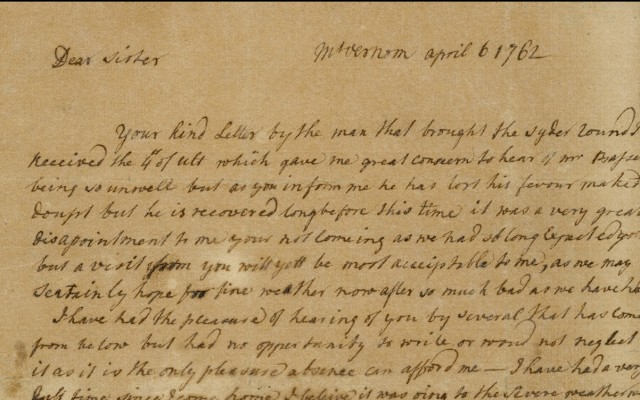 Dear Sister
Mt vernom april 6 1762
Your kind Letter by the man that brought the syder I
Received the 4th of ult which gave me great concern to hear of mr
being so unwell but as you inform me he has lost his fevour
doupt but he is recovered long before this time it was a very great
disapointment to me your not comeing as we had so long Expected you
but a visit from you will yett be most acciptable to me, as we may
scertainly hope for fine weather now after so much bad as we have
I have had the pleasure of hearing of you by several that has come
from below but had no opportunity to write or woud not neglect
it as it is the only pleasure absence can afford me — I have had a very
dull time since I come home I believe it was oing to the severe weather